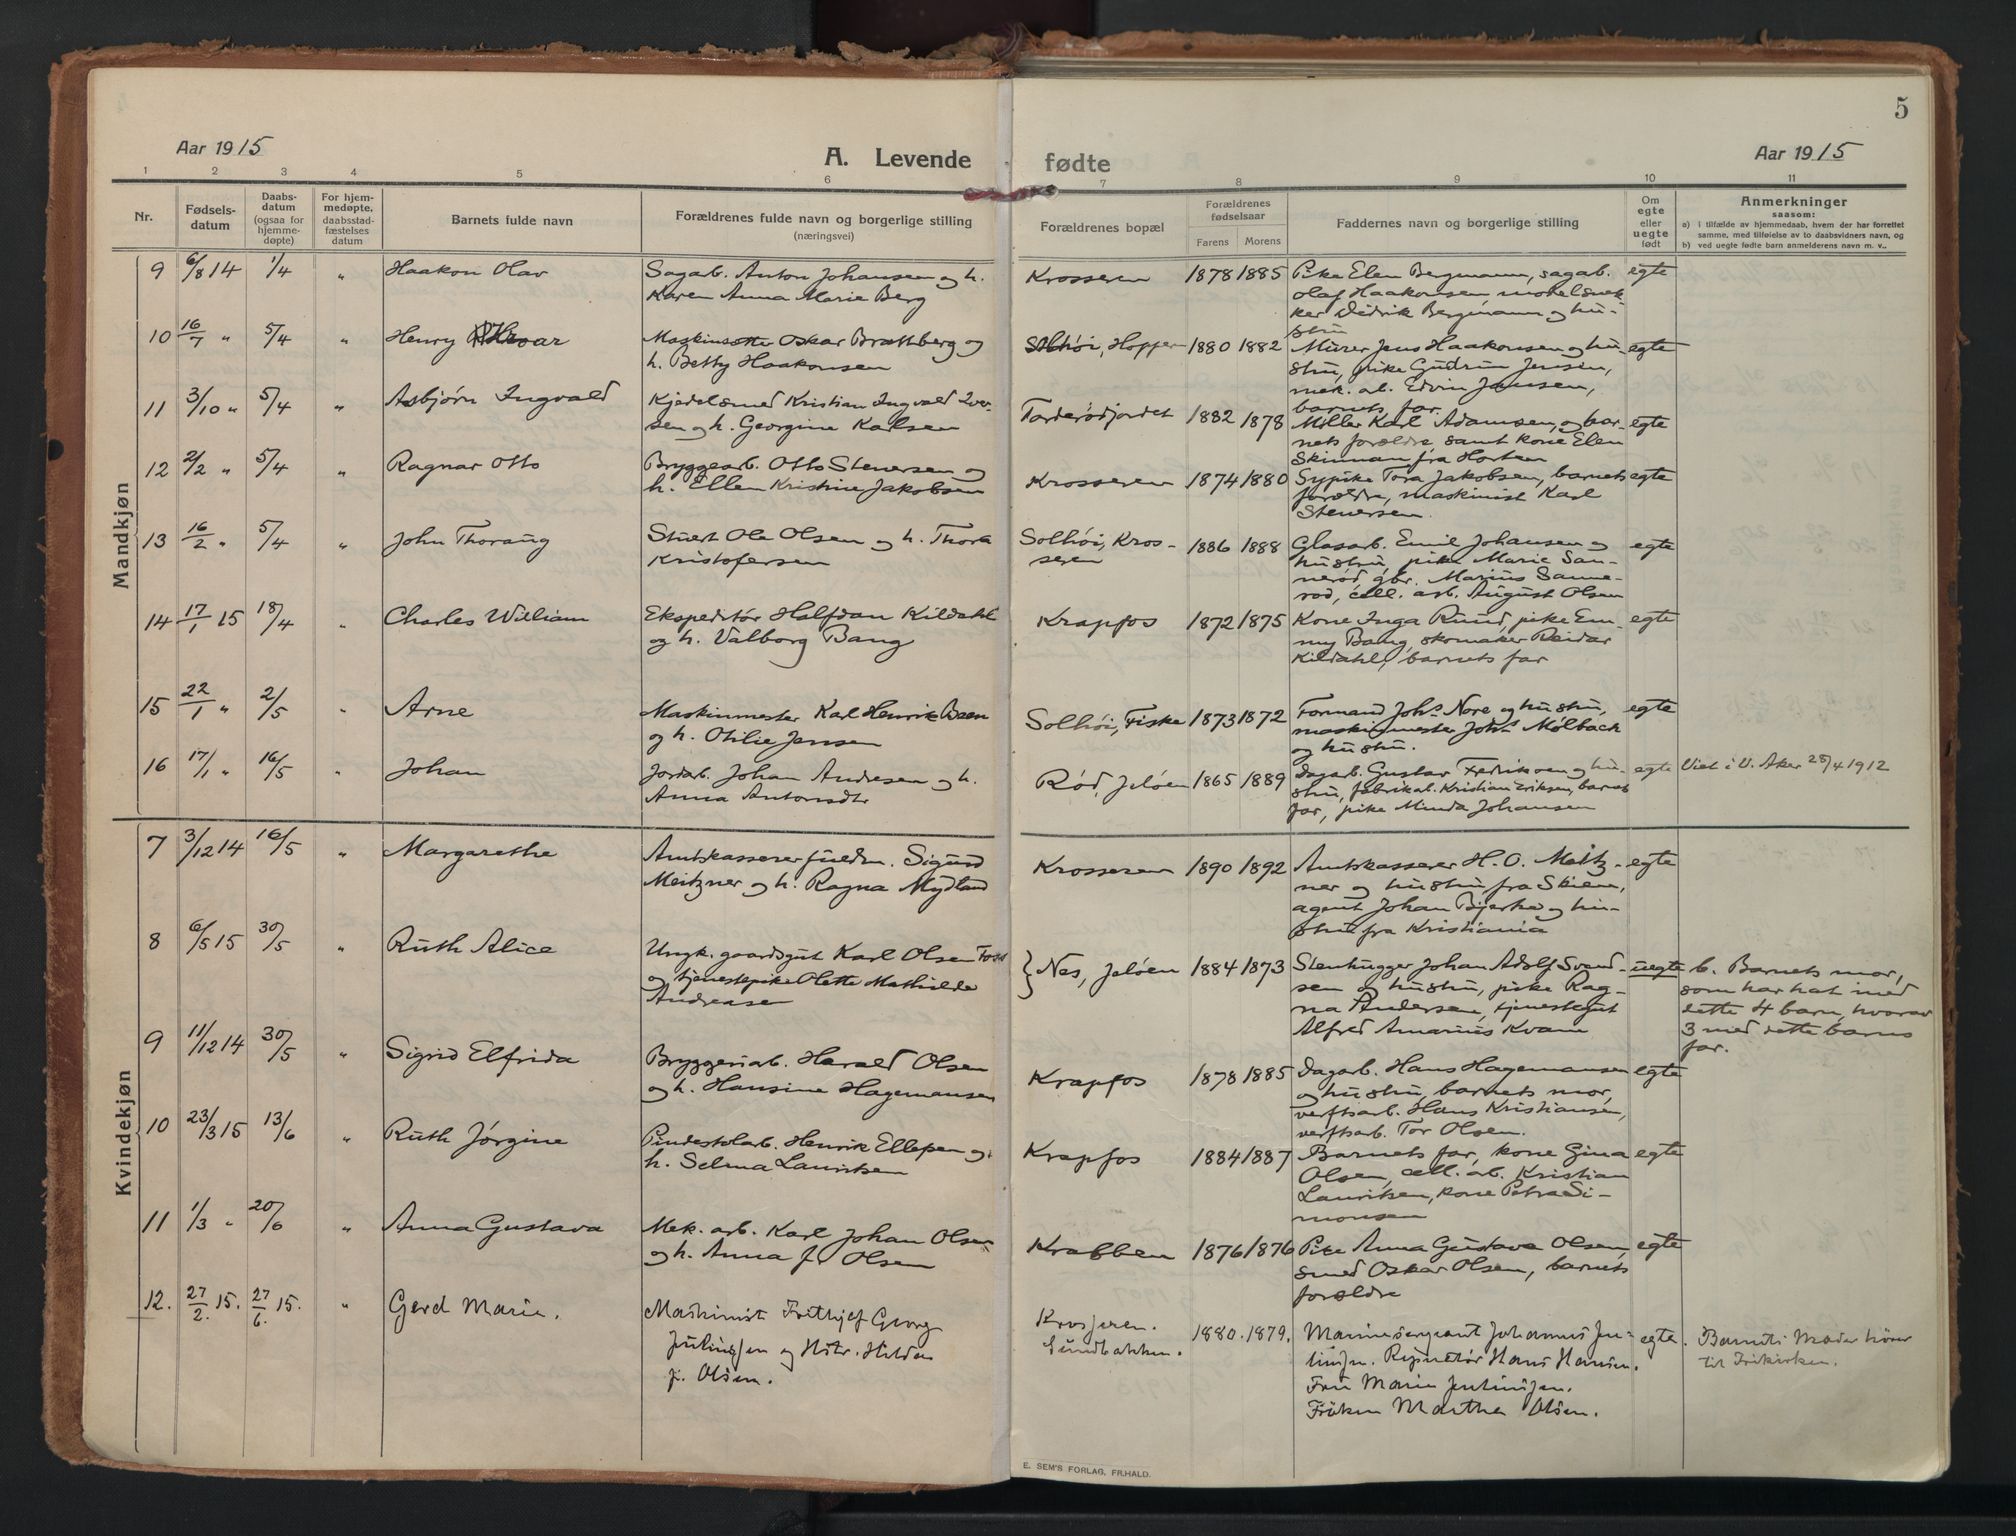 5
Aar 1915
A. Levende
fødte
Aar 1915
1 2 3 4 5 6 7 8 9 10 11
Nr.
Fødsels-
datum
Daabs-
datum
(ogsaa for
hjemme-
døpte)
For hjem-
medøpte,
daabsstad-
fæstelses
datum
Barnets fulde navn
Forældrenes fulde navn og borgerlige stilling
(næringsvei)
Forældrenes bopæl
Forældrenes
fødselsaar
Farens Morens
Faddernes navn og borgerlige stilling
Om
egte
eller
uegte
født
Anmerkninger
saasom:
a) i tilfælde av hjemmedaab, hvem der har forrettet
samme, med tilføielse av to daabsvidners navn, og
b) ved uegte fødte barn anmelderens navn m. v..
Mandkjøn
9 6/8 14 1/4 " Haakon Olav
Sagarb. Anton Johansen og h.
Karen Anna Marie Berg
Krosseren 1878 1885
Pike Elen Bergmann, sagarb.
Olaf Haakonsen, modelsnek
ker Didrik Bergmann og hu-
stru
egte
10 16/7 " 5/4 " Henry
Oskar Brattberg og
h. Betty Haakonsen
Solhøi, Hoppern 1880 1882
Murer Jens Haakonsen og hu-
stru, pike Gudrun Jensen,
mek. ab. Edvin Jensen,
barnets far.
egte
11 3/10 " 5/4 " Asbjørn Ingvald
Kjedelsmed Kristian Ingvald Iver-
sen og h. Georgine Karlsen
Tarderødjordet 1882 1878
Møller Karl Adamsen, og bar-
nets forældre samt kone Elen
Skinnan fra Horten
egte
12 2/2 " 5/4 " Ragnar Otto
Bryggearb. Otto Stenersen og
h. Ellen Kristine Jakobsen
Krosseren 1874 1880
Sypike Tora Jakobsen, barnets
forældre, maskinist Karl
Stenersen.
egte
13 16/2 " 5/4 " John Thoraug
Stuert Ole Olsen og h. Thora
Kristofersen
Solhøi, Kros-
seren
1886 1888
Glasarb. Emil Johansen og
hustru, pike Marie San-
nerød, gbr. Marius Sanne-
rød, cell. arb. August Olsen
egte
14 17/1 15 18/4 " Charles William
Ekspeditør Halfdan Kildahl
og h. Valborg Bang
Krapfos 1872 1875
Kone Inga Ruud, pike Em-
my Bang, skomaker Reidar
Kildahl, barnets far
egte
15 22/1 " 2/5 " Arne
Maskinmester Karl Henrik Been
og h. Otilie Jensen
Solhøi, Fiske 1873 1872
Formand Johs Nore og hustru,
maskinmester Johs Mølback
og hustru.
egte
16 17/1 " 16/5 " Johan
Jordarb. Johan Andresen og h.
Anna Antonsdtr
Rød, Jeløen 1865 1889
Dagarb. Gustav Fredriksen og hu-
stru, fabrikab. Kristian Eriksen, barnets
far, pike Minda Johansen
egte
Viet i V. Aker 28/4 1912
Kvindekjøn
7 3/12 14 16/5 " Margarethe
Amtskasserer fuldm. Sigurd
Meitzner og h. Ragna Mydland
Krosseren 1890 1892
Amtskasserer H. O. Meitz-
ner og hustru fra Skien,
agent Johan Bjerke og hu-
stru fra Kristiania
egte
8 6/5 15 30/5 " Ruth Alice
Ungk. gaardsgut Karl Olsen Foss
og tjenestepike Olette Mathilde
Andreasen
Nes, Jeløen 1884 1873
Stenhugger Johan Adolf Svend-
sen og hustru, pike Rag-
na Andersen, tjenestegut
Alfred Amarius Kvam
uegte
b. Barnets mor,
som har hat med
dette 4 barn, hvorav
3 med dette barns
far.
9 11/12 14 30/5 " Sigrid Elfrida
Bryggeriarb. Harald Olsen
og h. Hansine Hagemansen
Krapfos 1878 1885
Dagarb. Hans Hagemansen
og hustru, barnets mor,
verftsarb. Hans Kristiansen,
verftsarb. Tor Olsen.
egte
10 23/3 15 13/6 " Ruth Jørgine
Pindestolarb. Henrik Ellefsen og
h. Selma Lauritsen
Krapfos 1884 1887
Barnets far, kone Gina
Olsen, cell. ab. Kristian
Lauritsen, kone Petra Si-
monsen
egte
11 1/3 " 20/6 " Anna Gustava
Mek. arb. Karl Johan Olsen
og h. Anna f. Olsen
Krabben 1876 1876
Pike Anna Gustava Olsen,
smed Oskar Olsen, barnets
forældre
egte
12. 27/2. 15. 27/6. 15. " Gerd Marie.
Maskinist Frithjof Georg
og Hstr. Hilda
f. Olsen.
Krosseren.
Sundbakken.
1880. 1879.
Marinesergeant Johannes Ju-
Hans Hansen.
Fru Marie
Frøken Marthe Olsen.
egte.
Barnets Moder hører
til Frikirken.
E. SEM'S FORLAG, FR.HALD.